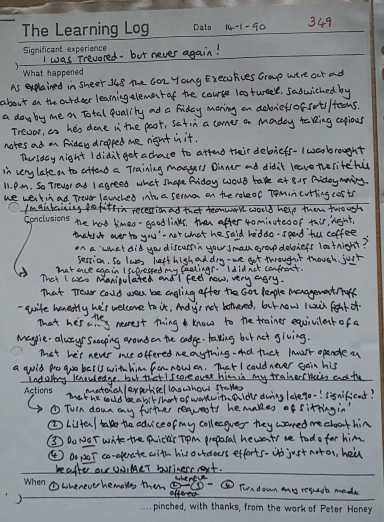 The Learning Log Date 14-1-90 349
Significant experience
I was Trevored - but never again!
What happened
As explained in Sheet 348 the G02 Young Executives Group were out and
about on the outdoor learning element of the course last week, sandwiched by
a day by me on Total Quality and a Friday morning on debriefs of sets/teams.
Trevor, as he's done in the past, sat in a corner on Monday taking copious
notes and on Friday dropped me right in it.
Thursday night I didn't get a chance to attend their debriefs - I was brought
in very late on to attend a Training Managers Dinner and didn't leave the site till
11.p.m. So Trevor and I agreed what shape Friday would take at 8.15 Friday morning.
We went in and Trevor launched into a sermon on the role of TQM in cutting costs
/maintaining in recession and that teamwork would help them through
Conclusions the hard times - good links, then after 20 minutes of this, 'right,
that's it over to you' - not what he said he'd do - spend till coffee
on a 'what did you discuss in your small group debriefs last night?'
session. So I was left high and dry - we got through it though, just
That once again I supressed my feelings - I did not confront.
That I was manipulated and I feel now, very angry.
That Trevor could well be angling after the G02 People management stuff
- quite honestly he's welcome to it, Andy's not bothered, but now I will fight it.
That he's the nearest thing I know to the trainer equivalent of a
magpie - always snooping around on the cadge - taking but not giving.
That he's never once offered me anything - and that I must operate on
a quid pro quo basis with him from now on. That I could never gain his
Industry knowledge, but that I score over him in my trainer skills and the
Actions material/expertise/know how stakes
That he could be a bit short of work with during late 90 - ! significant?
① Turn down any further requests he makes of 'sitting in'
② Listen/take the advice of my colleagues they warned me about him
③ Do NOT write the TQM proposal he wants me to do for him.
④ Do NOT co-operate with his outdoors efforts - it's just not on, he'll
be after our UNIPART business next.
When ① whenever he makes them ②-③- whenever offered ④ Turn down any request made
....pinched, with thanks, from the work of Peter Honey